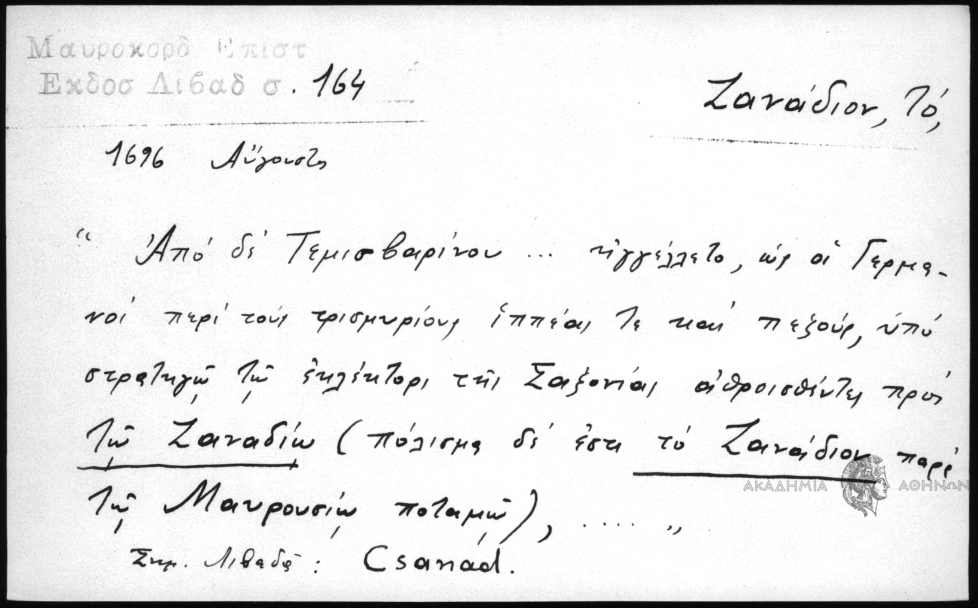 Μαυροκορδ Επιστ
Εκδοσ Λιβαδ σ. 164
Ζανάδιον, τό,
1696 Αὔγουστς
“ Ἀπό δέ Τεμισβαρίνου ... ἠγγέλλετο, ὡς οἱ Γερμα-
νοί περί τούς τρισμυρίους ἱππέας τε καί πεζούς, ὑπό
στρατηγῷ τῷ ἐκλέκτορι τῆς Σαξονίας ἀθροισθέντες πρός
τῷ Ζαναδίῳ (πόλισμα δέ ἐστι τό Ζανάδιον παρά
ΑΚΑΔΗΜΙΑ ΑΘΗΝΩΝ
τῷ Μαυρουσίῳ ποταμῷ), ..... „
Σημ. Λιβαδᾶ : Csanad.